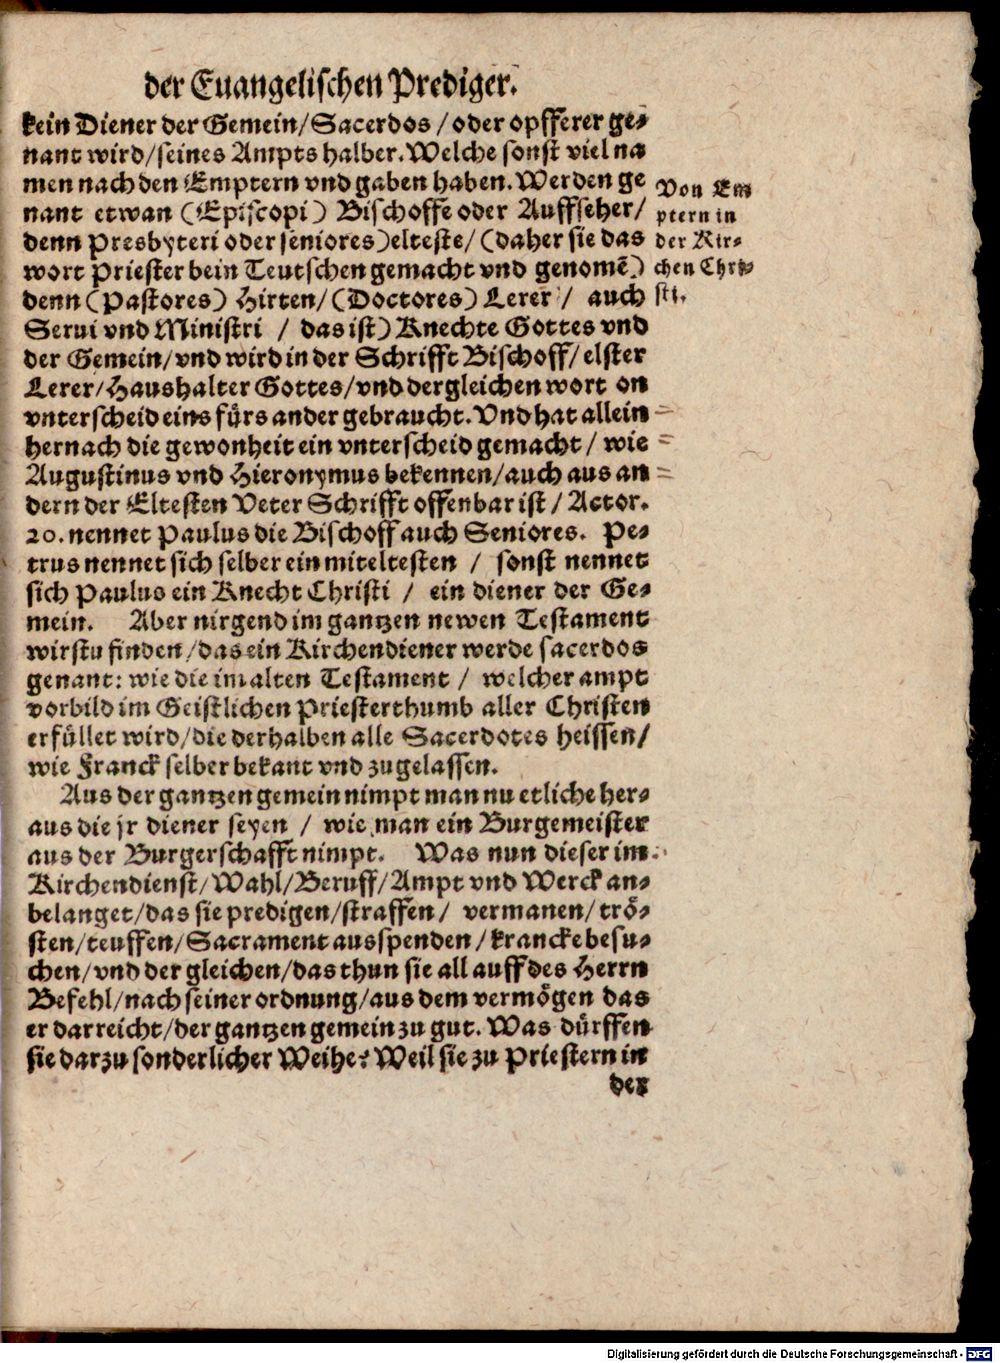 der Euangelischen Prediger.
kein Diener der Gemein/Sacerdos / oder opfferer ge-
nant wird/seines Ampts halber. Welche sonst viel na
men nach den Emptern vnd gaben haben. Werden ge
nant etwan (Episcopi) Bischoffe oder Auffseher/
denn Presbyteri oder seniores) elteste/ (daher sie das
wort Priester bein Teutschen gemacht vnd genomẽ)
denn (Pastores) Hirten/ (Doctores) Lerer / auch
Serui vnd Ministri / das ist) Knechte Gottes vnd
der Gemein/vnd wird in der Schrifft Bischoff/ elster
Lerer/Haushalter Gottes/vnd dergleichen wort on
vnterscheid eins fürs ander gebraucht. Vnd hat allein
hernach die gewonheit ein vnterscheid gemacht / wie
Augustinus vnd Hieronymus bekennen/auch aus an
dern der Eltesten Veter Schrifft offenbar ist / Actor.
20. nennet Paulus die Bischoff auch Seniores. Pe-
trus nennet sich selber ein miteltesten / sonst nennet
sich Paulus ein Knecht Christi / ein diener der Ge-
mein. Aber nirgend im gantzen newen Testament
wirstu finden/das ein Kirchendiener werde sacerdos
genant: wie die im alten Testament / welcher ampt
vorbild im Geistlichen Priesterthumb aller Christen
erfüllet wird/die derhalben alle Sacerdotes heissen/
wie Franck selber bekant vnd zugelassen.
Aus der gantzen gemein nimpt man nu etliche her-
aus die jr diener seyen / wie man ein Burgemeister
aus der Burgerschafft nimpt. Was nun dieser im
Kirchendienst/Wahl/Beruff/Ampt vnd Werck an-
belanget/das sie predigen/straffen/ vermanen/ trö-
sten/teuffen/Sacrament ausspenden / krancke besu-
chen/vnd der gleichen/das thun sie all auff des Herrn
Befehl/nach seiner ordnung/aus dem vermögen das
er darreicht/der gantzen gemein zu gut. Was dürffen
sie darzu sonderlicher Weihe? Weil sie zu Priestern in
der
Von Em
ptern in
der Kir-
chen Chri-
sti.
Digitalisierung gefördert durch die Deutsche Forschungsgemeinschaft - DFG